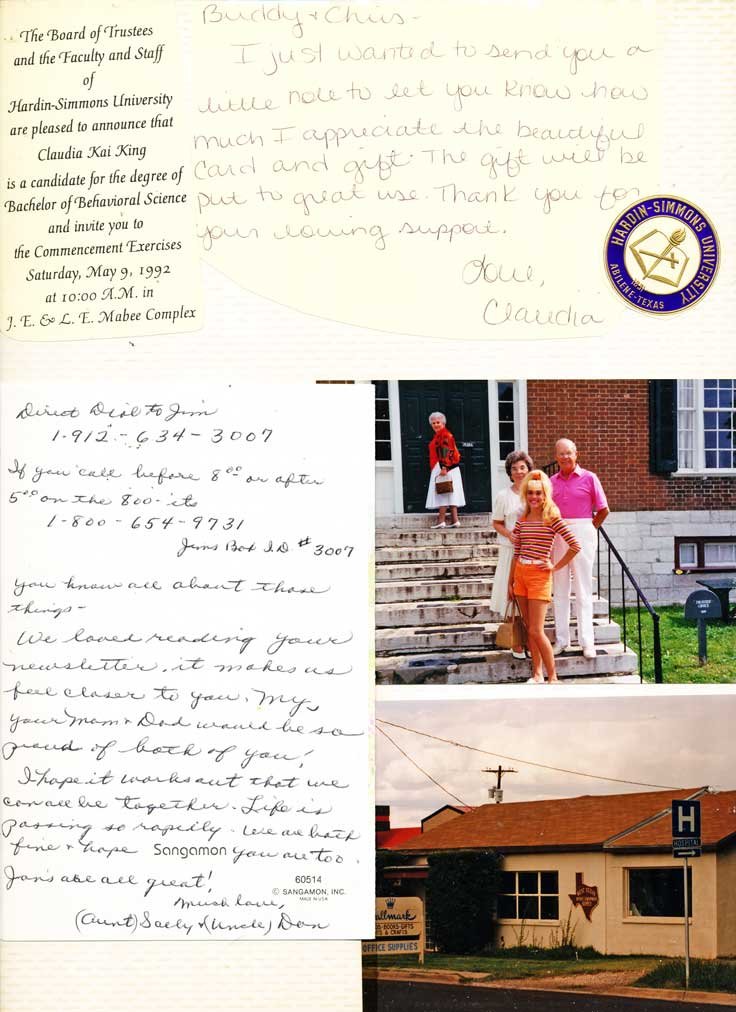 The Board of Trustees
and the Faculty and Staff
of
Hardin-Simmons University
are pleased to announce that
Claudia Kai King
is a candidate for the degree of
Bachelor of Behavioral Science
and invite you to
the Commencement Exercises
Saturday, May 9, 1992
at 10:00 A.M. in
J. E. & L. E. Mabee Complex
Buddy & Chris -
I just wanted to send you a
little note to let you know how
much I appreciate the beautiful
card and gift. The gift will be
put to great use. Thank you for
your loving support.
Love,
Claudia
HARDIN-SIMMONS UNIVERSITY
1891
ABILENE-TEXAS
Direct Dial to Jim
1-912-634-3007
If you call before 8:00 or after
5:00 on the 800- its
1-800-654-9731
Jims Box I.D #3007
you know all about those
things-
We loved reading your
newsletter. it makes us
feel closer to you. My,
your Mom & Dad would be so
proud of both of you!
I hope it works out that we
can all be together. Life is
passing so rapidly. We are both
fine & hope you are too.
Sangamon
Jan's are all great!
60514
© SANGAMON, INC.
MADE IN USA
Much love,
(Aunt) Sally & (Uncle) Don
H
HOSPITAL
Hallmark
BOOKS-GIFTS
& CRAFTS
OFFICE SUPPLIES